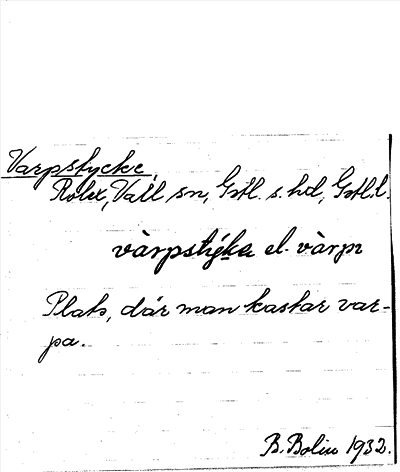 Varpstycke,
Rolex, Vall sn, Gotl. s. hd, Gotl.l.
vàrpstýkẹ el. vàrpi
Plats, där man kastar var-
pa.
B. Bolin 1932.